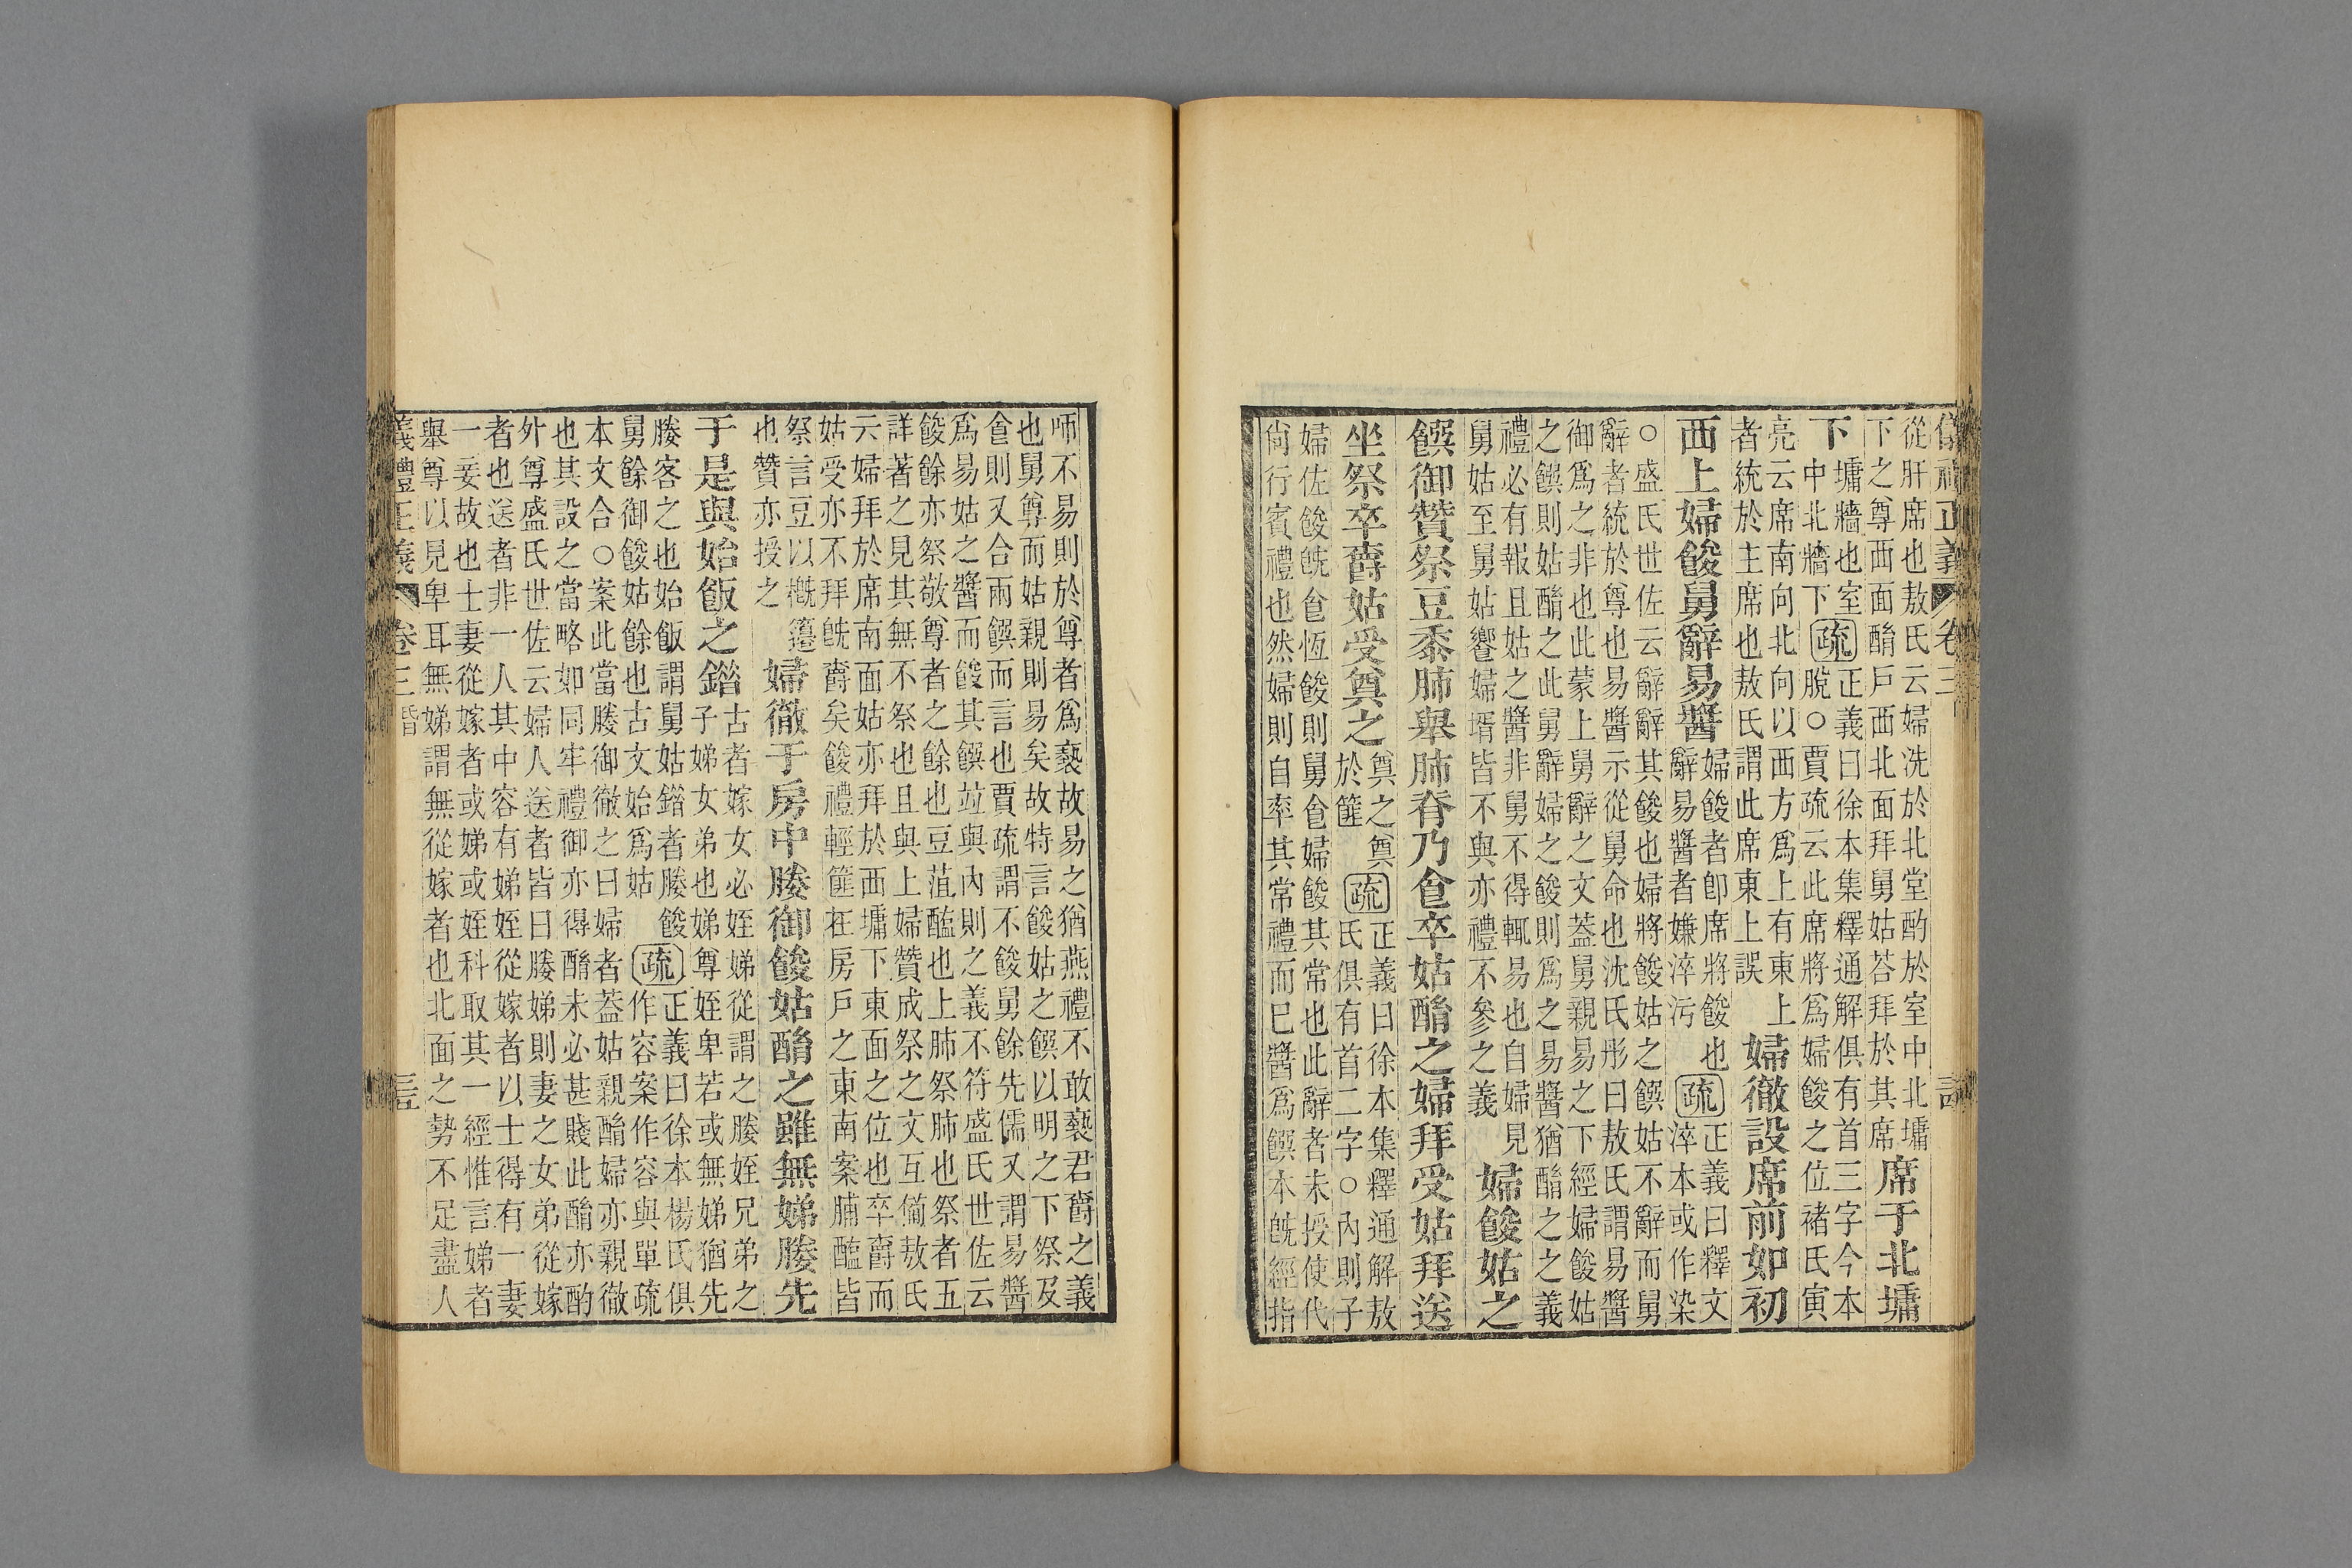 儀禮正義 卷三
從肝席也敖氏云婦洗於北堂酌於室中北墉
下之尊西面酳戶西北面拜舅姑荅拜於其席
席于北墉
下
墉牆也室
中北牆下
疏
正義曰徐本集釋通解俱有首三字今本
脫○賈疏云此席將爲婦餕之位褚氏寅
亮云席南向北向以西方爲上有東上
者統於主席也敖氏謂此席東上誤
婦徹設席前如初
西上婦餕舅辭易醬
婦餕者卽席將餕也
辭易醬者嫌淬污
疏
正義曰釋文
淬本或作染
○盛氏世佐云辭辭其餕也婦將餕姑之饌姑不辭而舅
辭者統於尊也易醬示從舅命也沈氏彤曰敖氏謂易醬
御爲之非也此蒙上舅辭之文蓋舅親易之下經婦餕姑
之饌則姑酳之此舅辭婦之餕則爲之易醬猶酳之之義
禮必有報且姑之醬非舅不得輒易也自婦見
舅姑至舅姑饗婦壻皆不與亦禮不參之義
婦餕姑之
饌御贊祭豆黍肺舉肺脊乃食卒姑酳之婦拜受姑拜送
坐祭卒爵姑受奠之
奠之奠
於篚
疏
正義曰徐本集釋通解敖
氏俱有首二字○內則子
婦佐餕旣食恆餕則舅食婦餕其常也此辭者未授使代
尙行賓禮也然婦則自率其常禮而已醬爲饌本旣經指
咂不易則於尊者爲褻故易之猶燕禮不敢褻君爵之義
也舅尊而姑親則易矣故特言餕姑之饌以明之下祭及
食則又合兩饌而言也賈疏謂不餕舅餘先儒又謂易醬
爲易姑之醬而餕其饌竝與內則之義不符盛氏世佐云
餕餘亦祭敬尊者之餘也豆菹醢也上肺祭肺也祭者五
詳著之見其無不祭也且與上婦贊成祭之文互備敖氏
云婦拜於席南面姑亦拜於西墉下東面之位也卒爵而
姑受亦不拜旣爵矣餕禮輕篚在房戶之東南案脯醢皆
祭言豆以概籩
也贊亦授之
婦徹于房中媵御餕姑酳之雖無娣媵先
于是與始飯之錯
古者嫁女必姪娣從謂之媵姪兄弟之
子娣女弟也娣尊姪卑若或無娣猶先
媵客之也始飯謂舅姑錯者媵餕
舅餘御餕姑餘也古文始爲姑
疏
正義曰徐本楊氏俱
作容案作容與單疏
本文合○案此當媵御徹之曰婦者蓋姑親酳婦亦親徹
也其設之當略如同牢禮御亦得酳未必甚賤此酳亦酌
外尊盛氏世佐云婦人送者皆曰媵娣則妻之女弟從嫁
者也送者非一人其中容有娣姪從嫁者以士得有一妻
一妾故也士妻從嫁者或娣或姪科取其一經惟言娣者
舉尊以見卑耳無娣謂無從嫁者也北面之勢不足盡人
禮正義 卷三